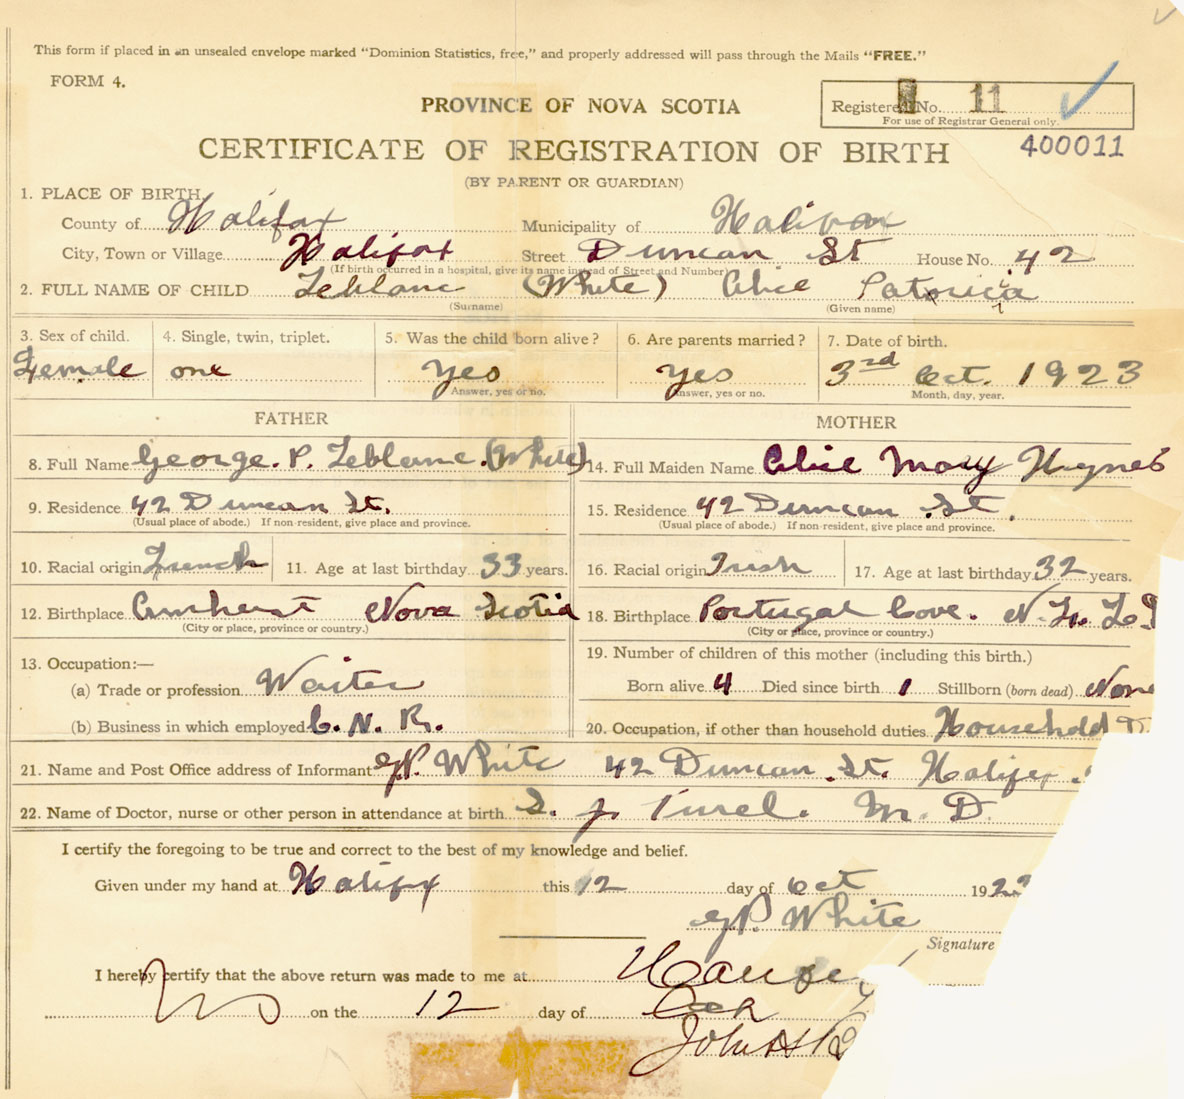 This form if placed in an unsealed envelope marked "Dominion Statistics, free," and properly addressed will pass through the Mails "FREE."
FORM 4.
PROVINCE OF NOVA SCOTIA
Registered No. 11
For use of Registrar General only.
CERTIFICATE OF REGISTRATION OF BIRTH
400011
(BY PARENT OR GUARDIAN)
1. PLACE OF BIRTH
County of Halifax Municipality of Halifax
City, Town or Village Halifax Street Duncan St House No. 42
(If birth occurred in a hospital, give its name instead of Street and Number)
2. FULL NAME OF CHILD Leblanc (White) Alice Patoricia
(Surname) (Given name)
3. Sex of child. 4. Single, twin, triplet. 5. Was the child born alive? 6. Are parents married? 7. Date of birth.
Female one Yes Yes 3rd Oct. 1923
Answer, yes or no. Answer, yes or no. Month, day, year.
FATHER MOTHER
8. Full Name George. P. Leblanc. (White) 14. Full Maiden Name Alice Mary Haynes
9. Residence 42 Duncan St. 15. Residence 42 Duncan St.
(Usual place of abode.) If non-resident, give place and province. (Usual place of abode.) If non-resident, give place and province.
10. Racial origin French 11. Age at last birthday 33 years. 16. Racial origin Irish 17. Age at last birthday 32 years.
12. Birthplace Amherst Nova Scotia 18. Birthplace Portugal Cove. N.
(City or place, province or country.) (City or place, province or country.)
13. Occupation:— 19. Number of children of this mother (including this birth.)
(a) Trade or profession Waiter Born alive 4 Died since birth 1 Stillborn (born dead) None
(b) Business in which employed C. N. R. 20. Occupation, if other than household duties Household D
21. Name and Post Office address of Informant G.P. White 42 Duncan St. Halifax
22. Name of Doctor, nurse or other person in attendance at birth J. M. D.
I certify the foregoing to be true and correct to the best of my knowledge and belief.
Given under my hand at Halifax this 12 day of Oct 192
G.P. White
Signature
I hereby certify that the above return was made to me at
on the 12 day of
John H